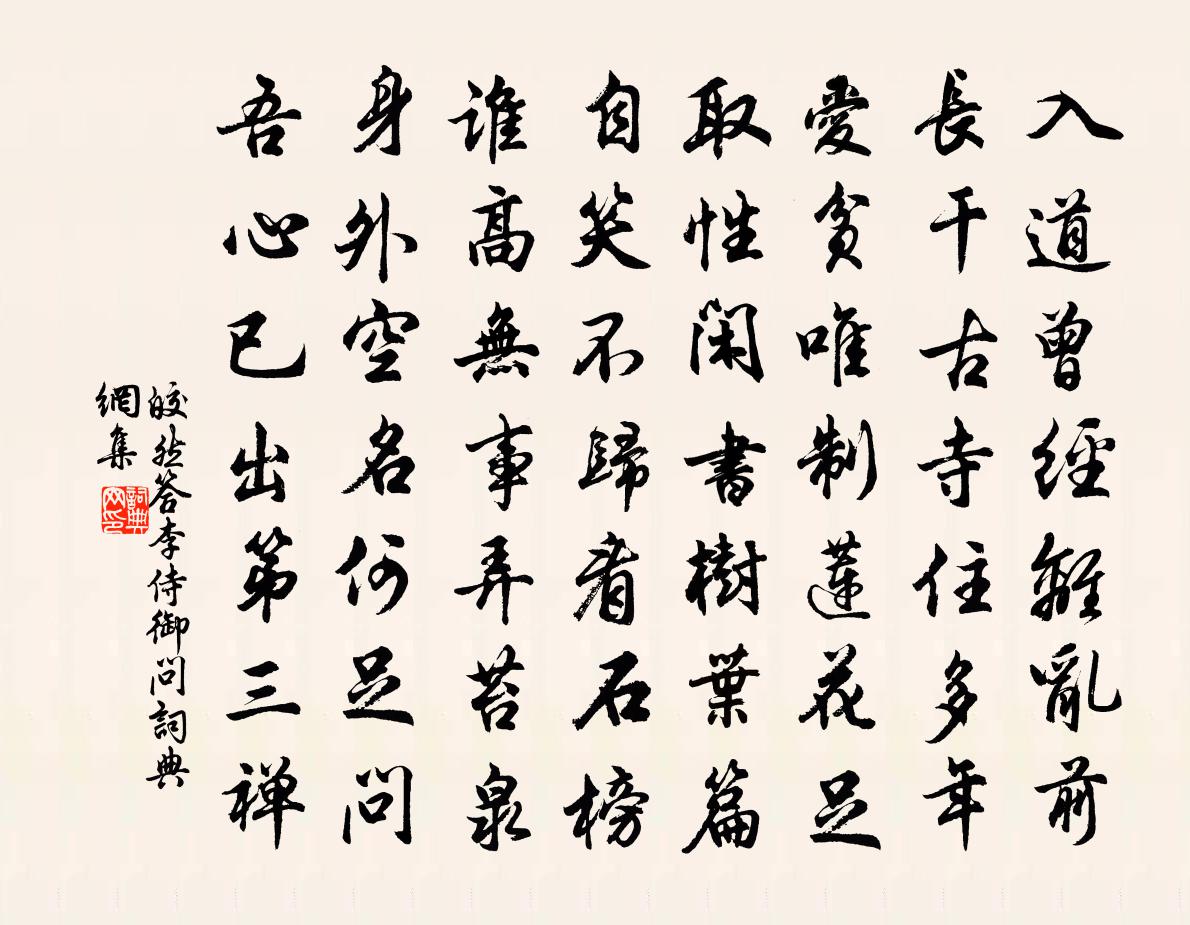 入道曾經離亂前
長干古寺住多年
愛貧唯制蓮花足
取性閑書樹葉篇
自笑不歸看石榜
誰高無事弄苔泉
身外空名何足問
吾心已出第三禅
皎然答李侍御問詞典
網集
詞典
网印